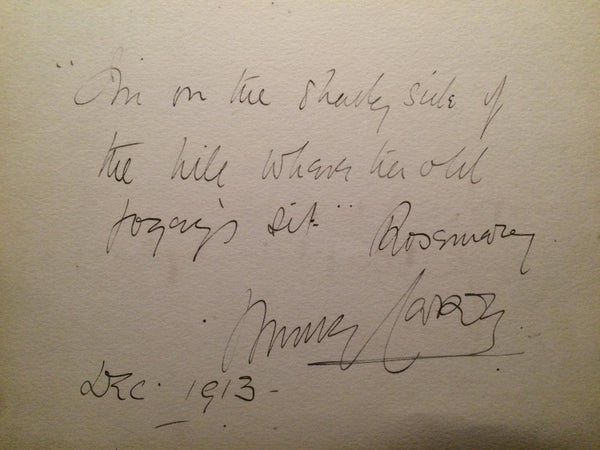 "I'm on the shady side of
the hill where the old
fogey's sit" Rosemary
Murray Carson
Dec. 1913 -